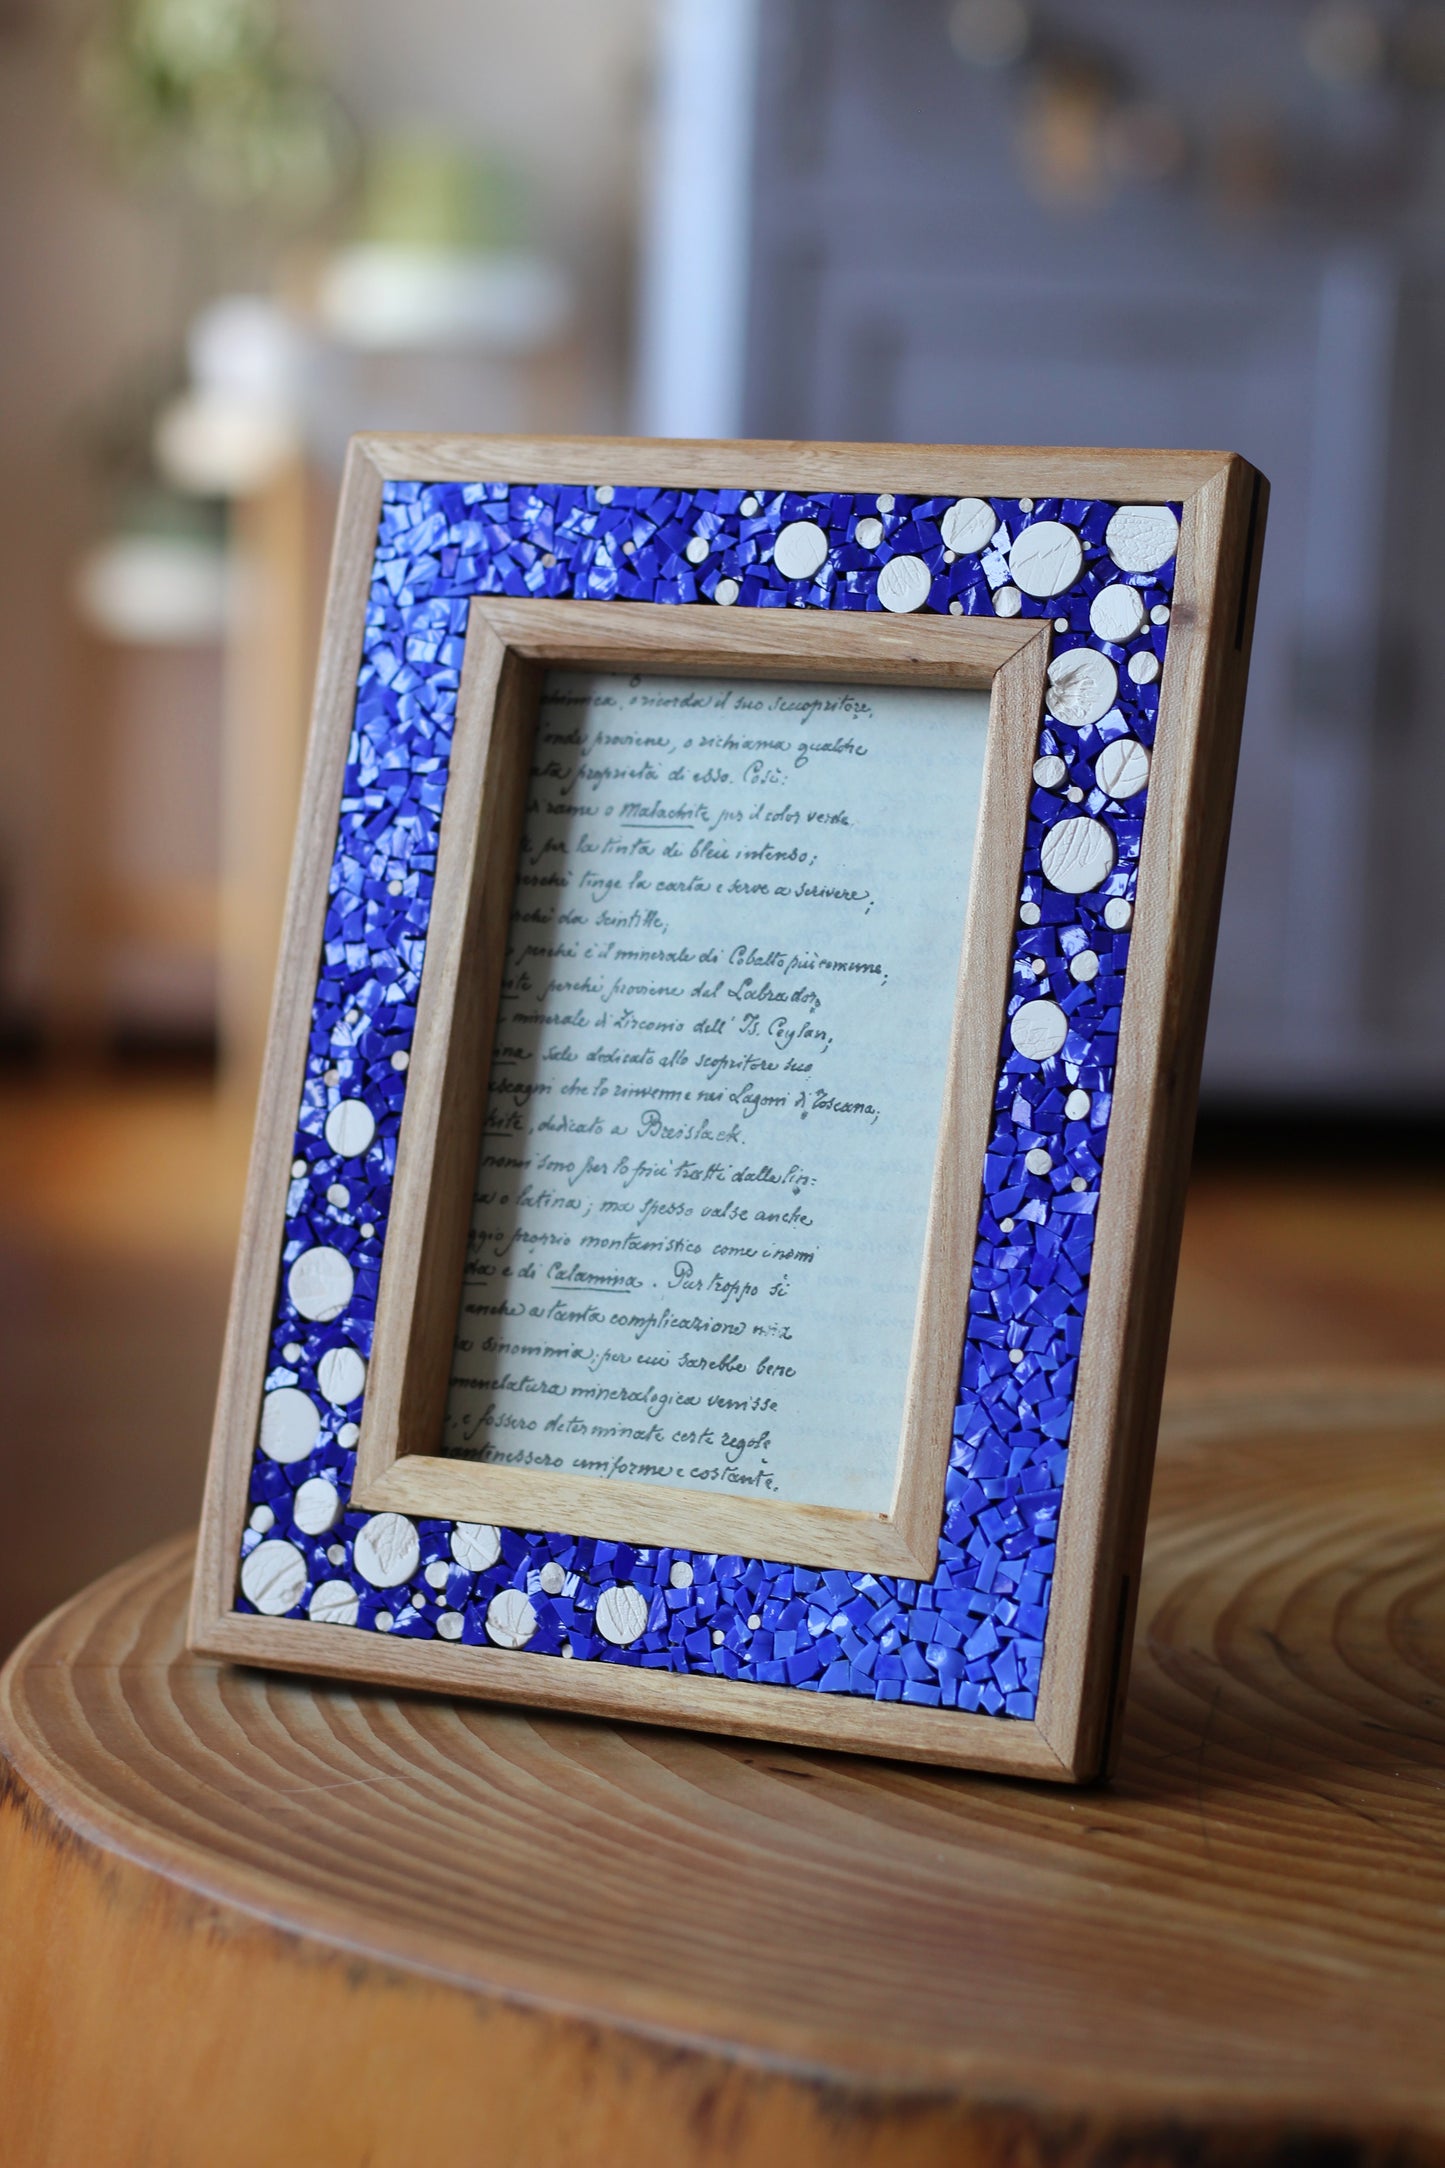 chimica, o ricorda il suo scuopritore,
onde proviene, o richiama qualche
proprietà di esso. Così:
rame o Malachite per il color verde.
per la tinta di bleu intenso;
perchè tinge la carta e serve a scrivere;
da scintille;
perchè è il minerale di Cobalto più comune;
perchè proviene dal Labrador;
minerale di Zirconio dell' Is. Ceylan;
sale dedicato allo scopritore suo
che lo rinvenne nei Lagoni di Toscana;
dedicato a Breislack.
nomi sono per lo più tratti dalle lin=
o latina; ma spesso valse anche
proprio montanistico come i nomi
e di Calamina. Pur troppo si
anche a tanta complicazione
sinonimia; per cui sarebbe bene
mineralogica venisse
e fossero determinate certe regole
uniforme e costante.